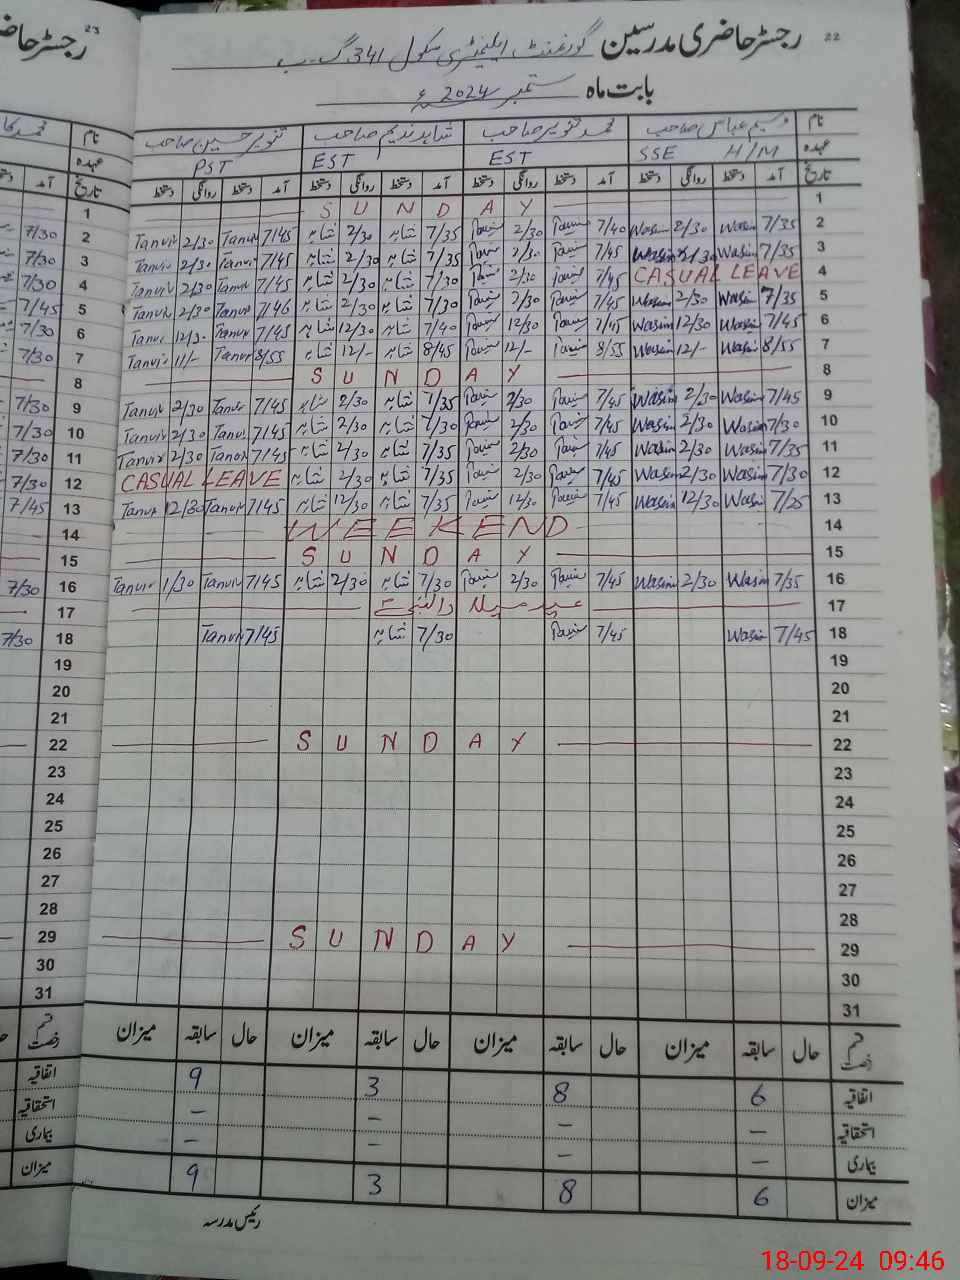 رجسٹر حاضری مدرسین گورنمنٹ ایلیمنٹری سکول 341 گ۔ب 22
بابت ماہ ستمبر 2024ء
نام وسیم عباس صاحب محمد تنویر صاحب شاہد ندیم صاحب تنویر حسین صاحب
عہدہ SSE H/M EST EST PST
تاریخ آمد دستخط روانگی دستخط آمد دستخط روانگی دستخط آمد دستخط روانگی دستخط آمد دستخط روانگی دستخط
1 SUNDAY
2 7/35 Wasim 2/30 Wasim 7/40 2/30 7/35 شاہد 2/30 شاہد 7/45 Tanvir 2/30 Tanvir
3 7/35 Wasim Wasim 7/45 2/30 7/35 شاہد 2/30 شاہد 7/45 Tanvir 2/30 Tanvir
4 CASUAL LEAVE 7/45 2/30 7/30 شاہد 2/30 شاہد 7/45 Tanvir 2/30 Tanvir
5 7/35 Wasim 2/30 Wasim 7/45 2/30 7/30 شاہد 2/30 شاہد 7/46 Tanvir 2/30 Tanvir
6 7/45 Wasim 12/30 Wasim 7/45 12/30 7/40 شاہد 12/30 شاہد 7/45 Tanvir 12/30 Tanvir
7 8/55 Wasim 12/- Wasim 8/55 12/- 8/45 شاہد 12/- شاہد 8/55 Tanvir 11/- Tanvir
8 SUNDAY
9 7/45 Wasim 2/30 Wasim 7/45 2/30 7/35 شاہد 2/30 شاہد 7/45 Tanvir 2/30 Tanvir
10 7/30 Wasim 2/30 Wasim 7/45 2/30 7/30 شاہد 2/30 شاہد 7/45 Tanvir 2/30 Tanvir
11 7/35 Wasim 2/30 Wasim 7/45 2/30 7/35 شاہد 2/30 شاہد 7/45 Tanvir 2/30 Tanvir
12 7/30 Wasim 2/30 Wasim 7/45 2/30 7/35 شاہد 2/30 شاہد CASUAL LEAVE
13 7/25 Wasim 12/30 Wasim 7/45 12/30 7/35 شاہد 12/30 شاہد 7/45 Tanvir 12/30 Tanvir
14 WEEKEND
15 SUNDAY
16 7/35 Wasim 2/30 Wasim 7/45 2/30 7/30 شاہد 2/30 شاہد 7/45 Tanvir 1/30 Tanvir
17 عید میلاد النبیؐ
18 7/45 Wasim 7/45 7/30 شاہد 7/45 Tanvir
19
20
21
22 SUNDAY
23
24
25
26
27
28
29 SUNDAY
30
31
قسم رخصت حال سابقہ میزان حال سابقہ میزان حال سابقہ میزان حال سابقہ میزان
اتفاقیہ 6 8 3 9
استحقاقیہ – – – –
بیماری – – – –
میزان 6 8 3 9
رئیس مدرسہ
رجسٹر حاضری 23
7/30
7/30
7/30
7/45
7/30
7/30
7/30
7/30
7/30
7/30
7/45
7/30
7/30
18-09-24 09:46